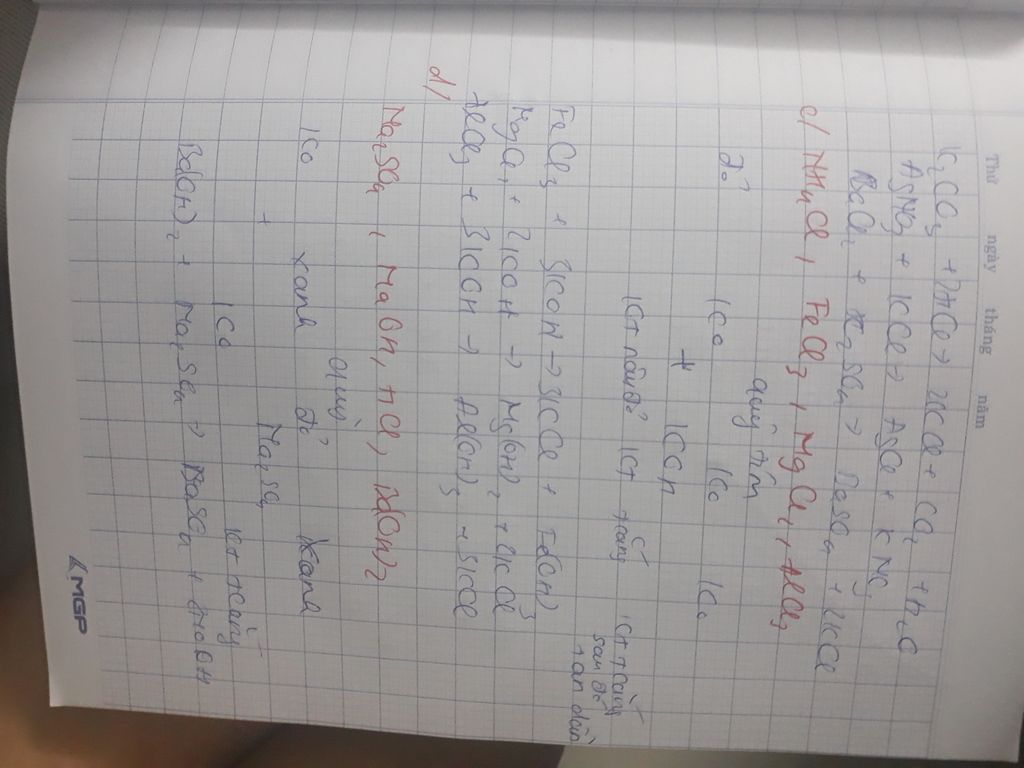 Thứ ngày tháng năm
K₂CO₃ + 2HCl → 2KCl + CO₂ + H₂O
AgNO₃ + KCl → AgCl + KNO₃
BaCl₂ + H₂SO₄ → BaSO₄ + 2KCl
c/ NH₄Cl, FeCl₃, MgCl₂, AlCl₃
quỳ tím
đỏ Ko Ko Ko
+ KOH
KT nâu đỏ KT trắng KT trắng
sau đó
tan dần
FeCl₃ + 3KOH → 3KCl + Fe(OH)₃
MgCl₂ + 2KOH → Mg(OH)₂ + 2KCl
AlCl₃ + 3KOH → Al(OH)₃ + 3KCl
d/
Na₂SO₄, NaOH, HCl, Ba(OH)₂
quỳ
Ko xanh đỏ xanh
+ Na₂SO₄
Ko KT trắng
Ba(OH)₂ + Na₂SO₄ → BaSO₄ + 2NaOH
MGP